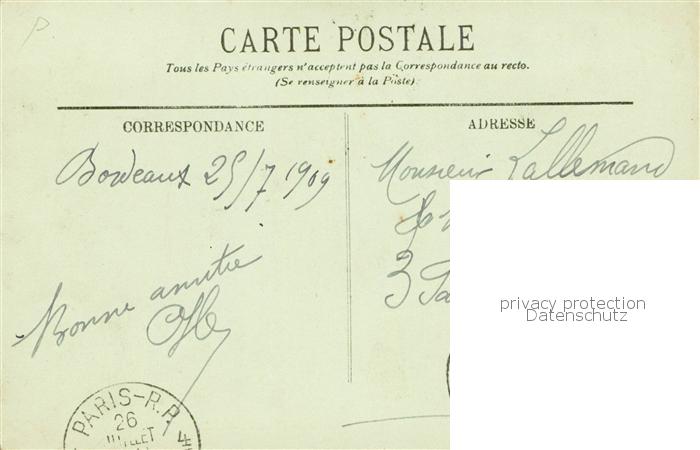 CARTE POSTALE
Tous les Pays étrangers n'acceptent pas la Correspondance au recto.
(Se renseigner à la Poste).
CORRESPONDANCE
Bordeaux 25/7 1909
Bonne amitié
ADRESSE
Monsieur Lallemand
3
privacy protection
Datenschutz
PARIS-R.P.
26
JUILLET